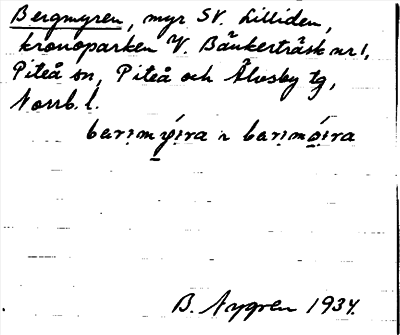 Bergmyren, myr SV. Lilliden,
kronoparken V. Bänkerträsk nr 1,
Piteå sn, Piteå och Älvsby tg,
Norrb. l.
bari̩my̱i̩ra ~ bari̩mo̱i̩ra
B. Nygren 1934.